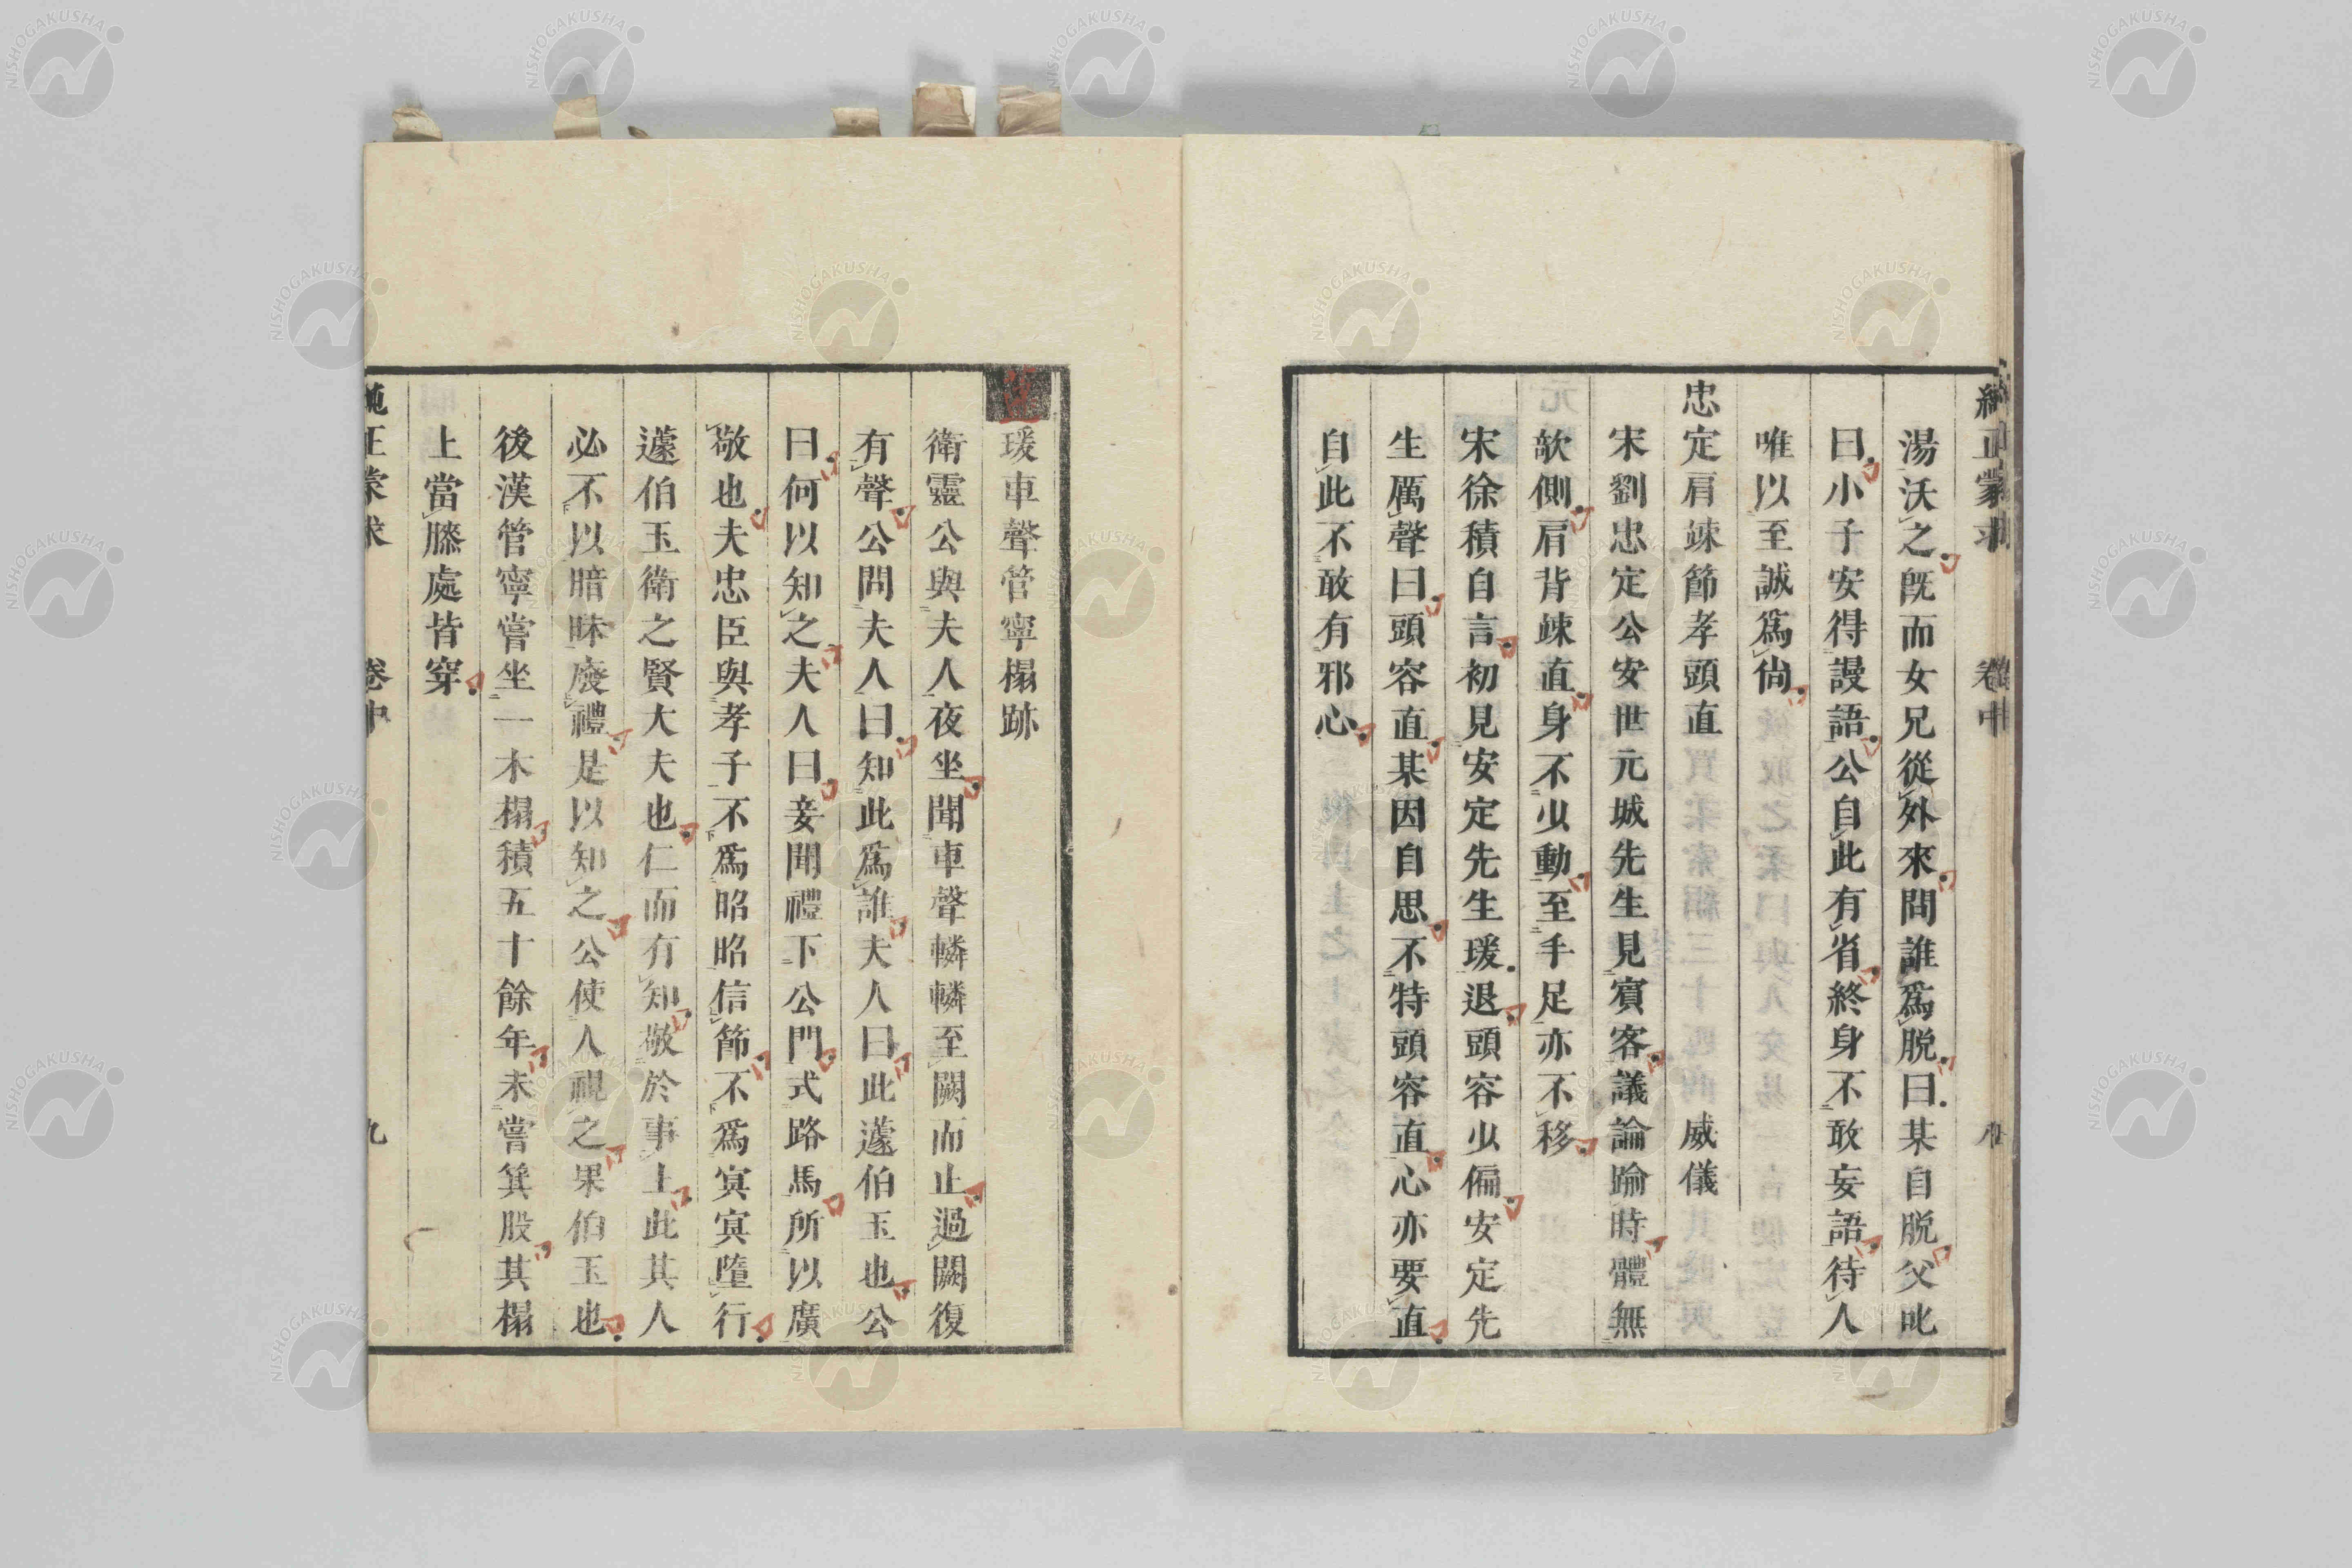 純正蒙求 卷中
湯沃之既而女兄從外來問誰爲脱曰某自脱父叱
曰小子安得謾語公自此有省終身不敢妄語待人
唯以至誠爲尙
忠定肩竦節孝頭直 威儀
宋劉忠定公安世元城先生見賓客議論踰時體無
欹側肩背竦直身不少動至手足亦不移
宋徐積自言初見安定先生瑗退頭容少偏安定先
生厲聲曰頭容直某因自思不特頭容直心亦要直
自此不敢有邪心
瑗車聲管寧榻跡
衛靈公與夫人夜坐聞車聲轔轔至闕而止過闕復
有聲公問夫人曰知此爲誰夫人曰此蘧伯玉也公
曰何以知之夫人曰妾聞禮下公門式路馬所以廣
敬也夫忠臣與孝子不爲昭昭信節不爲冥冥墮行
蘧伯玉衛之賢大夫也仁而有知敬於事上此其人
必不以暗昧廢禮是以知之公使人視之果伯玉也
後漢管寧嘗坐一木榻積五十餘年未嘗箕股其榻
上當膝處皆穿
純正蒙求 卷中 九
NISHOGAKUSHA